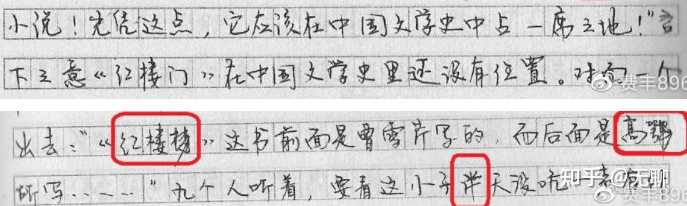 小说！光凭这点，它应该在中国文学史中占一席之地！"言
下之意《红楼门》在中国文学史里还没有位置。对
出去："《红楼梦》这书前面是曹雪芹写的，而后面是高鹗
所写……"九个人听着，要看这小子半天没吭
知乎 @无聊
费丰896
费丰896